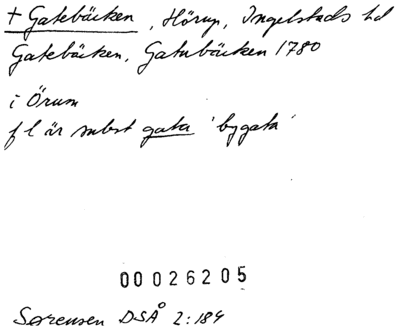 + Gatebäcken, Hörup, Ingelstads hd
Gatebäcken, Gatubäcken 1780
i Örum
f l är subst gata 'bygata'
00026205
Sørensen DSÅ 2:184